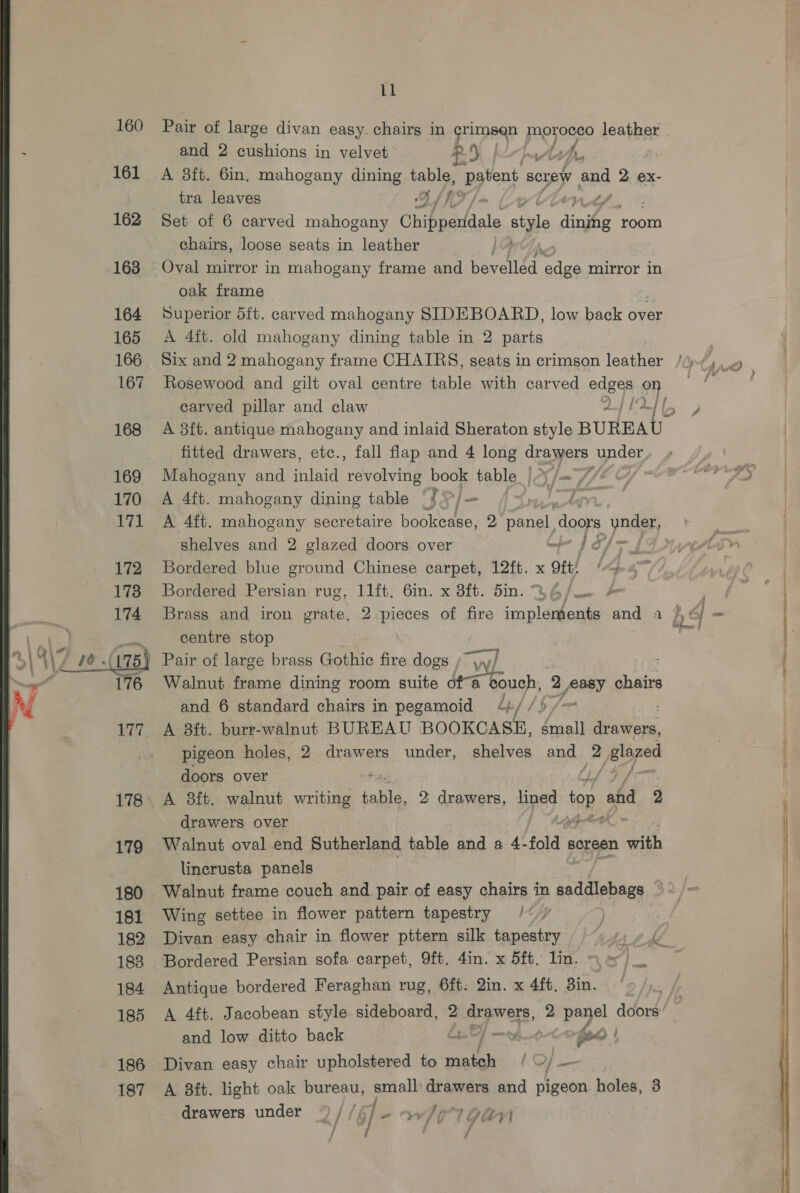 11
160 Pair of large divan easy chairs in crimson morocco leather
and 2 cushions in velvet
161 A 3ft. 6in. mahogany dining table, patent screw and 2 ex-
tra leaves
162 Set of 6 carved mahogany Chippendale style dining room
chairs, loose seats in leather
163 Oval mirror in mahogany frame and bevelled edge mirror in
oak frame
164 Superior 5ft. carved mahogany SIDEBOARD, low back over
165 A 4ft. old mahogany dining table in 2 parts
166 Six and 2 mahogany frame CHAIRS, seats in crimson leather
167 Rosewood and gilt oval centre table with carved edges on
carved pillar and claw
168 A 3ft. antique mahogany and inlaid Sheraton style BUREAU
fitted drawers, etc., fall flap and 4 long drawers under
169 Mahogany and inlaid revolving book table
170 A 4ft. mahogany dining table
171 A 4ft. mahogany secretaire bookcase, 2 panel doors under,
shelves and 2 glazed doors over
172 Bordered blue ground Chinese carpet, 12ft. x 9ft.
173 Bordered Persian rug, 11ft. 6in. x 3ft. 5in.
174 Brass and iron grate, 2 pieces of fire implements and a
centre stop
175 Pair of large brass Gothic fire dogs
176 Walnut frame dining room suite of a couch, 2 easy chairs
and 6 standard chairs in pegamoid
177 A 3ft. burr-walnut BUREAU BOOKCASE, small drawers,
pigeon holes, 2 drawers under, shelves and 2 glazed
doors over
178 A 3ft. walnut writing table, 2 drawers, lined top and 2
drawers over
179 Walnut oval end Sutherland table and a 4-fold screen with
lincrusta panels
180 Walnut frame couch and pair of easy chairs in saddlebags
181 Wing settee in flower pattern tapestry
182 Divan easy chair in flower pttern silk tapestry
183 Bordered Persian sofa carpet, 9ft. 4in. x 5ft. 1in.
184 Antique bordered Feraghan rug, 6ft. 2in. x 4ft. 3in.
185 A 4ft. Jacobean style sideboard, 2 drawers, 2 panel doors
and low ditto back
186 Divan easy chair upholstered to match
187 A 3ft. light oak bureau, small drawers and pigeon holes, 3
drawers under